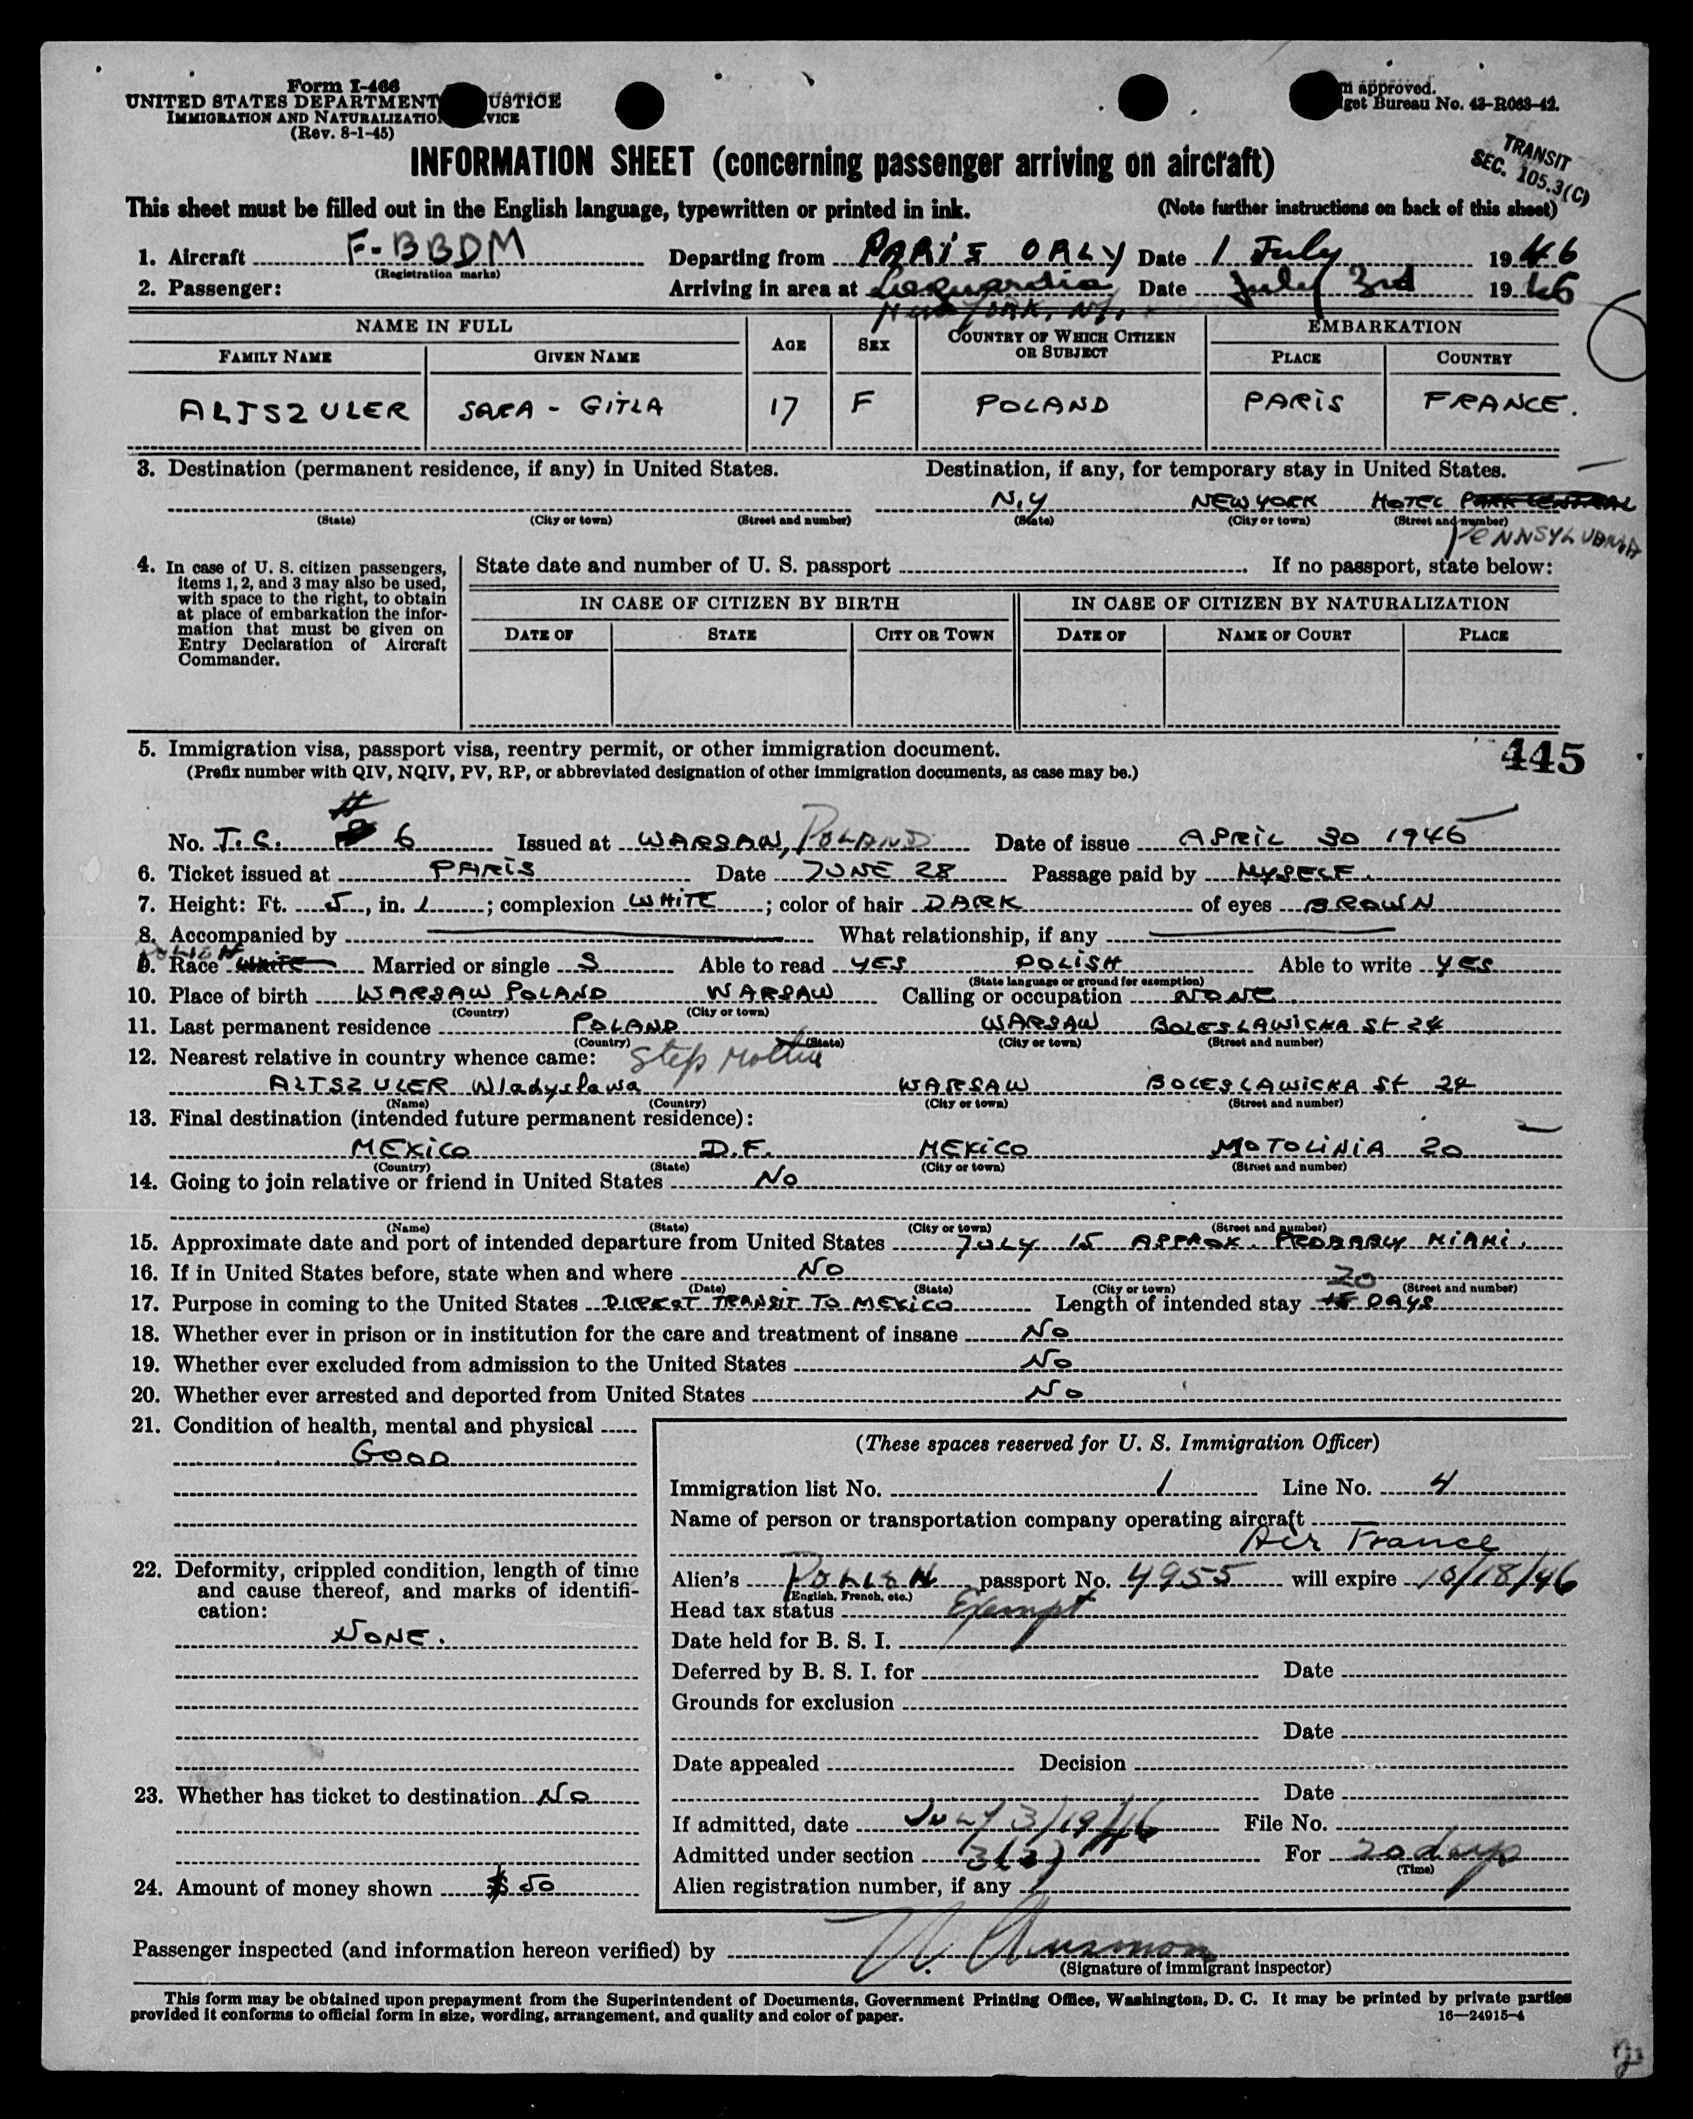 Form I-466
UNITED STATES DEPARTMENT USTICE
IMMIGRATION AND NATURALIZATIO VICE
(Rev. 8-1-45)
m approved.
get Bureau No. 43-R063-42.
TRANSIT
SEC. 105.3(C)
INFORMATION SHEET (concerning passenger arriving on aircraft)
This sheet must be filled out in the English language, typewritten or printed in ink. (Note further instructions on back of this sheet)
1. Aircraft F-BBDM Departing from PARIS ORLY Date 1 July 1946
(Registration marks)
2. Passenger: Arriving in area at Laguardia Date July 3rd 1946
New York, NY.
NAME IN FULL AGE SEX COUNTRY OF WHICH CITIZEN OR SUBJECT EMBARKATION
FAMILY NAME GIVEN NAME PLACE COUNTRY
ALTSZULER SARA - GITLA 17 F POLAND PARIS FRANCE.
3. Destination (permanent residence, if any) in United States. Destination, if any, for temporary stay in United States.
N.Y NEW YORK HOTEL PARK CENTRAL
(State) (City or town) (Street and number) (State) (City or town) (Street and number)
PENNSYLVANIA
4. In case of U. S. citizen passengers, items 1, 2, and 3 may also be used, with space to the right, to obtain at place of embarkation the information that must be given on Entry Declaration of Aircraft Commander.
State date and number of U. S. passport . If no passport, state below:
IN CASE OF CITIZEN BY BIRTH IN CASE OF CITIZEN BY NATURALIZATION
DATE OF STATE CITY OR TOWN DATE OF NAME OF COURT PLACE
5. Immigration visa, passport visa, reentry permit, or other immigration document. 445
(Prefix number with QIV, NQIV, PV, RP, or abbreviated designation of other immigration documents, as case may be.)
No. T.C. # 6 Issued at WARSAW, POLAND Date of issue APRIL 30 1946
6. Ticket issued at PARIS Date JUNE 28 Passage paid by MYSELF.
7. Height: Ft. 5, in. 1; complexion WHITE; color of hair DARK of eyes BROWN
8. Accompanied by What relationship, if any
POLISH
9. Race WHITE Married or single S Able to read YES POLISH Able to write YES
(State language or ground for exemption)
10. Place of birth WARSAW POLAND WARSAW Calling or occupation NONE
(Country) (City or town)
11. Last permanent residence POLAND WARSAW BOLESLAWICKA St 24
(Country) (State) (City or town) (Street and number)
12. Nearest relative in country whence came: Step Mother
ALTSZULER Wladyslawa WARSAW BOLESLAWICKA St 24
(Name) (Country) (City or town) (Street and number)
13. Final destination (intended future permanent residence):
MEXICO D.F. MEXICO MOTOLINIA 20
(Country) (State) (City or town) (Street and number)
14. Going to join relative or friend in United States NO
(Name) (State) (City or town) (Street and number)
15. Approximate date and port of intended departure from United States JULY 15 APPROX. PROBABLY MIAMI.
16. If in United States before, state when and where NO
(Date) (State) (City or town) (Street and number)
20
17. Purpose in coming to the United States DIREKT TRANSIT TO MEXICO Length of intended stay 15 DAYS
18. Whether ever in prison or in institution for the care and treatment of insane NO
19. Whether ever excluded from admission to the United States NO
20. Whether ever arrested and deported from United States NO
21. Condition of health, mental and physical
GOOD
22. Deformity, crippled condition, length of time and cause thereof, and marks of identification:
NONE.
23. Whether has ticket to destination NO
24. Amount of money shown $ 50
(These spaces reserved for U. S. Immigration Officer)
Immigration list No. 1 Line No. 4
Name of person or transportation company operating aircraft
Air France
Alien's POLISH passport No. 4955 will expire 10/18/46
(English, French, etc.)
Head tax status Exempt
Date held for B. S. I.
Deferred by B. S. I. for Date
Grounds for exclusion
Date
Date appealed Decision
Date
If admitted, date July 3/1946 File No.
Admitted under section 3(3) For 20 days
(Time)
Alien registration number, if any
Passenger inspected (and information hereon verified) by
(Signature of immigrant inspector)
This form may be obtained upon prepayment from the Superintendent of Documents, Government Printing Office, Washington, D. C. It may be printed by private parties
provided it conforms to official form in size, wording, arrangement, and quality and color of paper. 16—24915-4